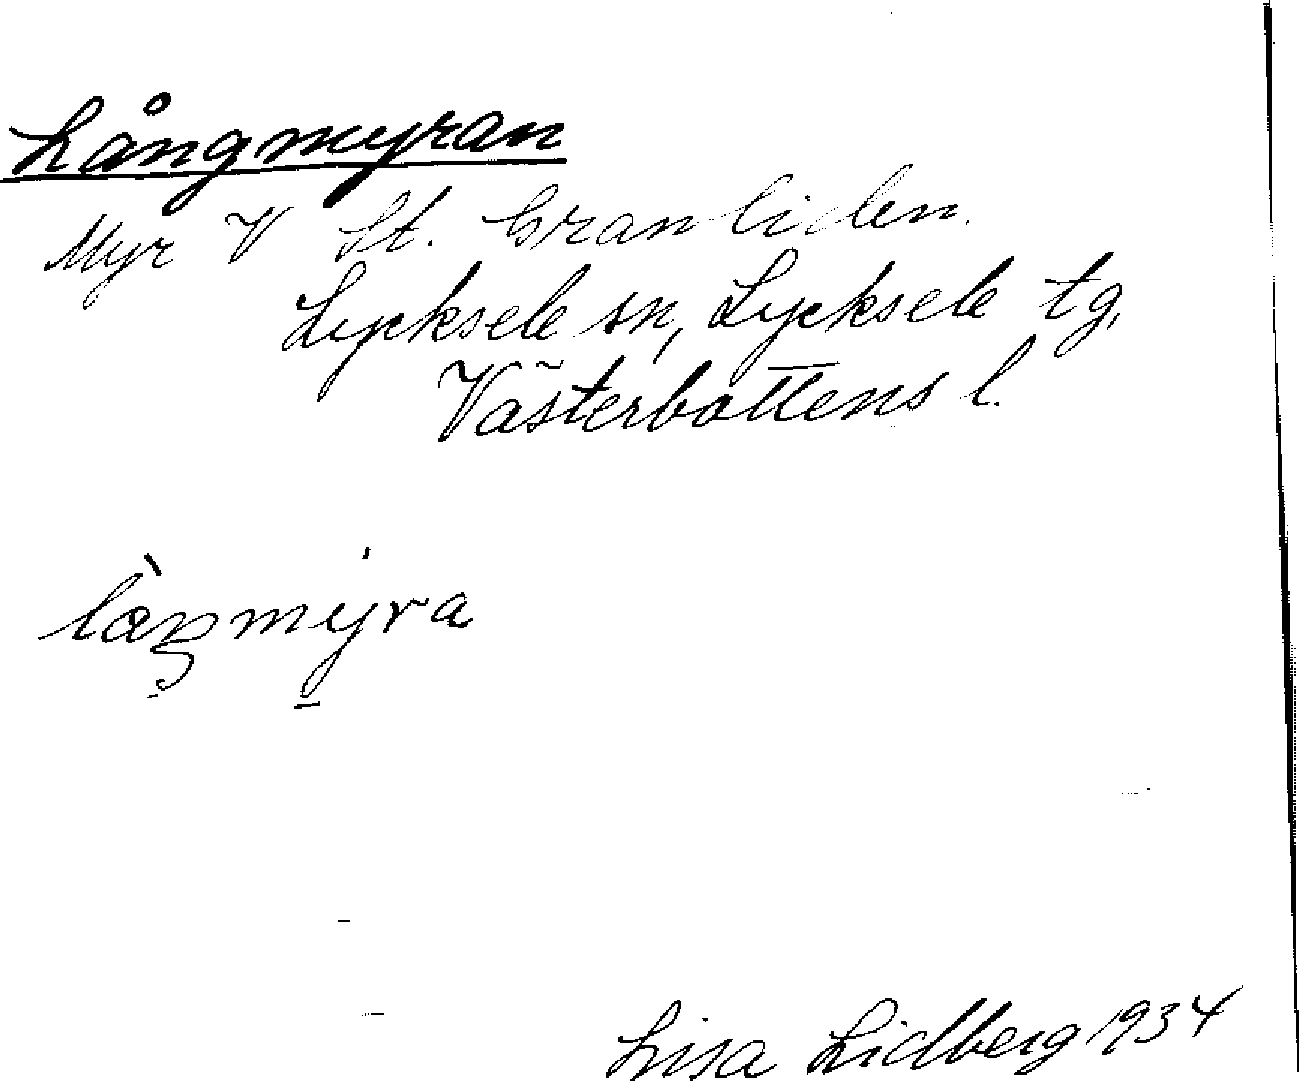 Långmyran
Myr V St. Granliden.
Lycksele sn, Lycksele tg,
Västerbottens l.
Lisa Lidberg 1934